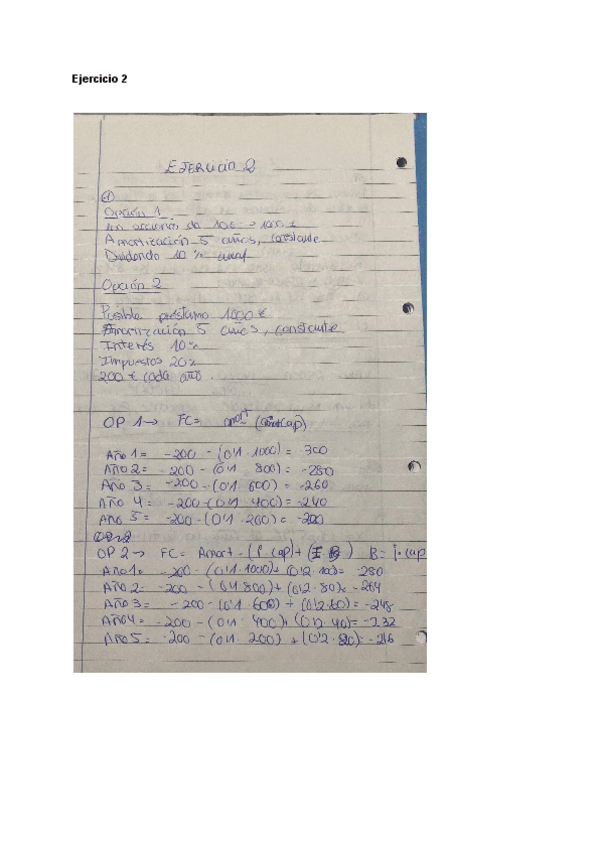 Ejercicio 2
EJERCICIO 2
①
Opción 1
acciones de 10€ → 1000 €
Amortización 5 años, constante
Dividendo 10 % anual
Opción 2
Posible préstamo 1000 €
Amortización 5 años, constante
Interés 10%
Impuestos 20%
200 € cada año.
OP 1→ FC= amort
Año 1= -200 - (0'1 . 1000) = 300
Año 2= -200 - (0'1 800) = -280
Año 3= -200 - (0'1 600) = -260
Año 4= -200 - (0'1 400) = -240
Año 5= -200 - (0'1 . 200) = -200
OP 2→ FC= Amort - (i cap) + (I B) B= i . cap
Año 1= -200 - (0'1 . 1000) + (0'2 . 100) = -280
Año 2= -200 - (0'1 800) + (0'2 . 80) = -264
Año 3= -200 - (0'1 600) + (0'2 . 60) = -248
Año 4= -200 - (0'1 . 400) + (0'2 . 40) = -232
Año 5= -200 - (0'1 . 200) + (0'2 . 20) = -216